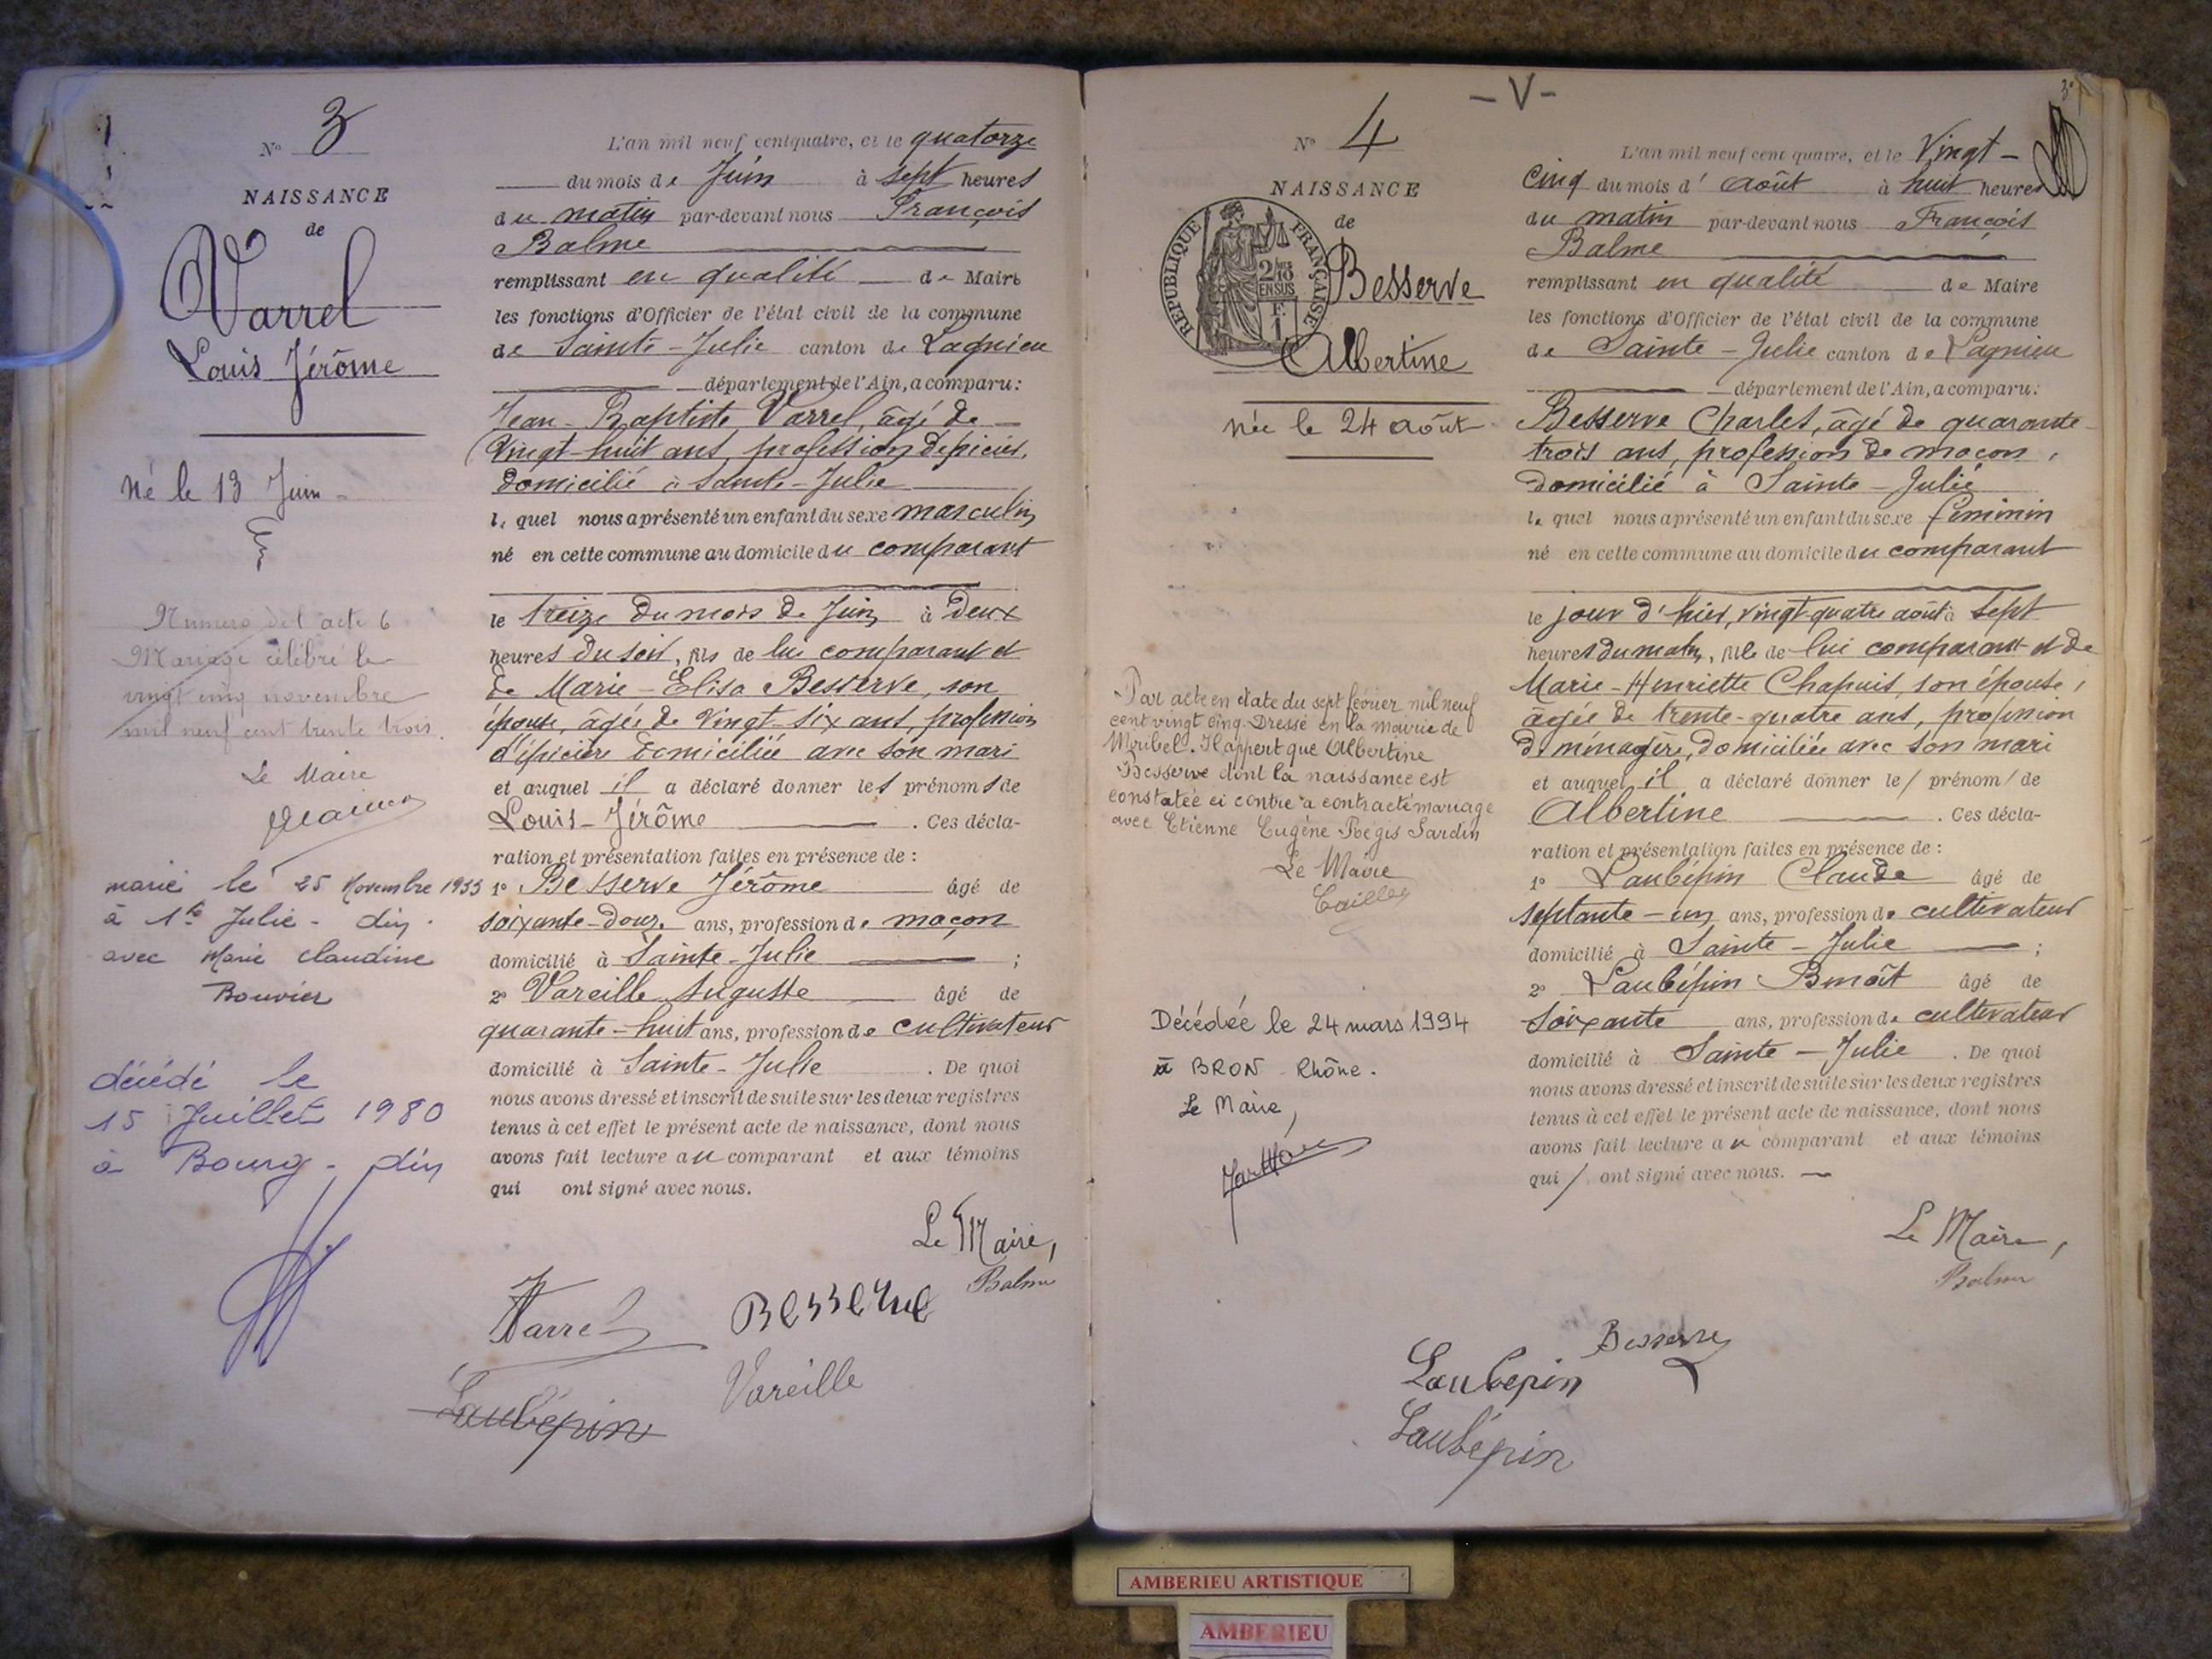 N° 3
NAISSANCE
de
Varrel
Louis Jérôme
Né le 13 Juin
Numero de l'acte 6
Mariage célébré le
vingt cinq novembre
mil neuf cent trente trois.
Le Maire
marié le 25 Novembre 1933
à Ste Julie - Ain.
avec Marie Claudine
Bouvier
décédé le
15 Juillet 1980
à Bourg - Ain
L'an mil neuf cent quatre, et le quatorze
du mois de Juin à sept heures
du matin par-devant nous François
Balme
remplissant en qualité de Maire
les fonctions d'Officier de l'état civil de la commune
de Sainte-Julie canton de Lagnieu
département de l'Ain, a comparu:
Jean-Baptiste Varrel, âgé de
vingt-huit ans, profession d'épicier,
domicilié à Sainte-Julie
lequel nous a présenté un enfant du sexe masculin
né en cette commune au domicile du comparant
le treize du mois de Juin à deux
heures du soir, fils de lui comparant et
de Marie-Elisa Besserve, son
épouse, âgée de vingt-six ans, profession
d'épicière domiciliée avec son mari
et auquel il a déclaré donner les prénoms de
Louis-Jérôme . Ces décla-
ration et présentation faites en présence de :
1° Besserve Jérôme âgé de
soixante-douze ans, profession de maçon
domicilié à Sainte-Julie ;
2° Vareille Auguste âgé de
quarante-huit ans, profession de cultivateur
domicilié à Sainte-Julie . De quoi
nous avons dressé et inscrit de suite sur les deux registres
tenus à cet effet le présent acte de naissance, dont nous
avons fait lecture au comparant et aux témoins
qui ont signé avec nous.
Le Maire,
Balme
Varrel Besserve
Vareille
Laubépin
- V -
N° 4
NAISSANCE
de
REPUBLIQUE FRANÇAISE
2/10
EN SUS
Besserve
Albertine
Née le 24 août
Par acte en date du sept février mil neuf
cent vingt cinq. Dressé en la Mairie de
Miribel. Il appert que Albertine
Besserve dont la naissance est
constatée ci contre a contracté mariage
avec Etienne Eugène Régis Sardin
Le Maire
Décédée le 24 mars 1994
à BRON Rhône.
Le Maire,
L'an mil neuf cent quatre, et le Vingt-
Cinq du mois d' août à huit heures
du matin par-devant nous François
Balme
remplissant en qualité de Maire
les fonctions d'Officier de l'état civil de la commune
de Sainte-Julie canton de Lagnieu
département de l'Ain, a comparu:
Besserve Charles, âgé de quarante-
trois ans, profession de maçon,
domicilié à Sainte-Julie
lequel nous a présenté un enfant du sexe féminin
né en cette commune au domicile du comparant
le jour d'hier, vingt-quatre août à sept
heures du matin, fille de lui comparant et de
Marie-Henriette Chapuis, son épouse,
âgée de trente-quatre ans, profession
de ménagère, domiciliée avec son mari
et auquel il a déclaré donner le/ prénom/ de
Albertine . Ces décla-
ration et présentation faites en présence de :
1° Laubépin Claude âgé de
septante-un ans, profession de cultivateur
domicilié à Sainte-Julie ;
2° Laubépin Benoît âgé de
soixante ans, profession de cultivateur
domicilié à Sainte-Julie . De quoi
nous avons dressé et inscrit de suite sur les deux registres
tenus à cet effet le présent acte de naissance, dont nous
avons fait lecture au comparant et aux témoins
qui / ont signé avec nous.
Le Maire,
Balme
Besserve
Laubepin
Laubépin
AMBERIEU ARTISTIQUE
AMBERIEU